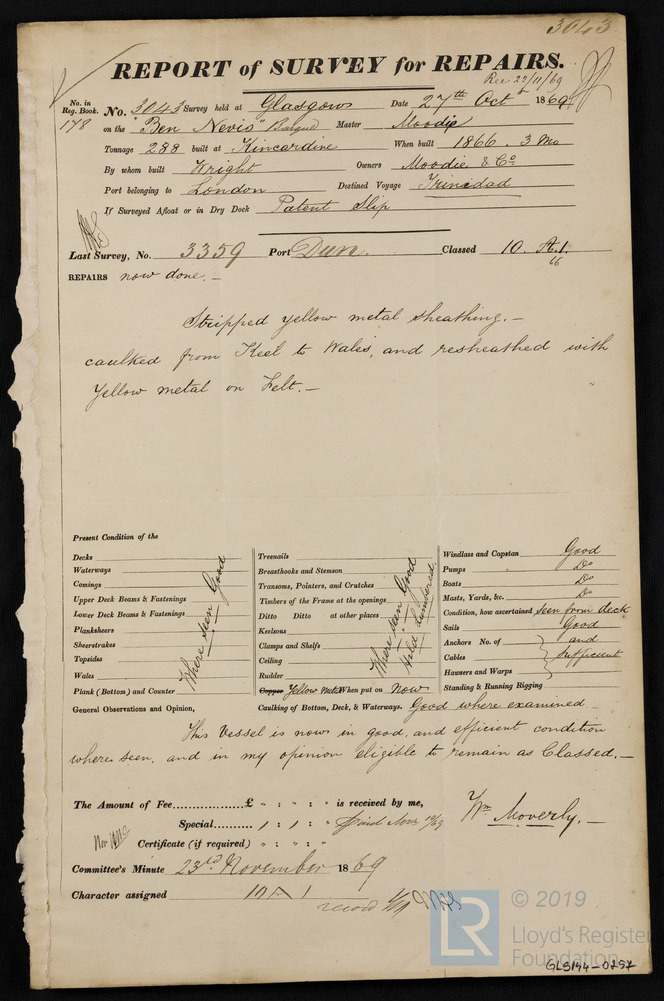 3043
REPORT of SURVEY for REPAIRS.
Rec 22/11/69
No. in Reg. Book. No. 3043 Survey held at Glasgow Date 27th Octr 1869
178 on the "Ben Nevis" Master Moodie
Tonnage 288 built at Kincardine When built 1866. 3 Mo
By whom built Wright Owners Moodie & Co
Port belonging to London Destined Voyage Trinidad
If Surveyed Afloat or in Dry Dock Patent Slip
Last Survey, No. 3359 Port Dun. Classed 10. A.1.
66
REPAIRS now done.—
Stripped yellow metal sheathing.—
caulked from Keel to Wales, and resheathed with
Yellow metal on Felt.—
Present Condition of the
Decks
Waterways
Comings
Upper Deck Beams & Fastenings
Lower Deck Beams & Fastenings
Planksheers
Sheerstrakes
Topsides
Wales
Plank (Bottom) and Counter
Where seen Good
Treenails
Breasthooks and Stemson
Transoms, Pointers, and Crutches
Timbers of the Frame at the openings
Ditto Ditto at other places
Keelsons
Clamps and Shelfs
Ceiling
Rudder
Copper Yellow Metal When put on Now
Where seen Good
Hold Lumbered
Windlass and Capstan Good
Pumps Do
Boats Do
Masts, Yards, &c. Do
Condition, how ascertained seen from deck
Sails Good
Anchors No. of and
Cables sufficient
Hawsers and Warps
Standing & Running Rigging
General Observations and Opinion, Caulking of Bottom, Deck, & Waterways. Good where examined
This Vessel is now in good, and efficient condition
where seen, and in my opinion eligible to remain as Classed.—
The Amount of Fee £ " : " : " is received by me,
Special 1 : 1 : "
Wm Moverly.—
Certificate (if required) " : " : "
Committee's Minute 23rd November 1869
Character assigned 10 A 1
record
© 2019
LR
Lloyd's Register
Foundation
GLS194-0297